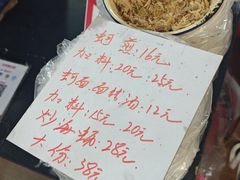 蚵煎:16元
加料:20元 25元
蚵面、面线油:12元
加料:15元 20元
炒海蛎:28元
大份:38元